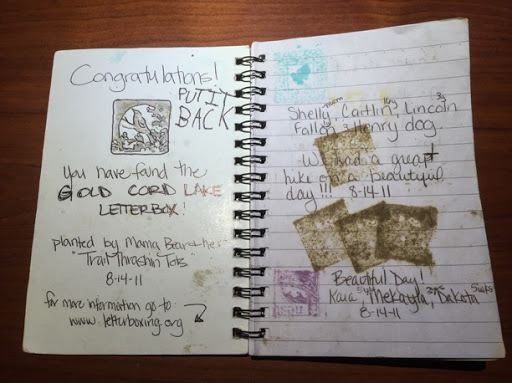 Congratulations!
PUT IT
BACK
You have found the
GOLD CORD LAKE
LETTERBOX!
planted by Mama Bear & her
"Trail Thrashin Tots"
8-14-11
for more information go to
www.letterboxing.org
Shelly, Caitlin, Lincoln
Fallon & Henry dog.
We had a great
hike on a beautyful
day!!! 8-14-11
Beautiful Day!
Kaia 5yrs, Mekayla, Dakota 5wks
8-14-11